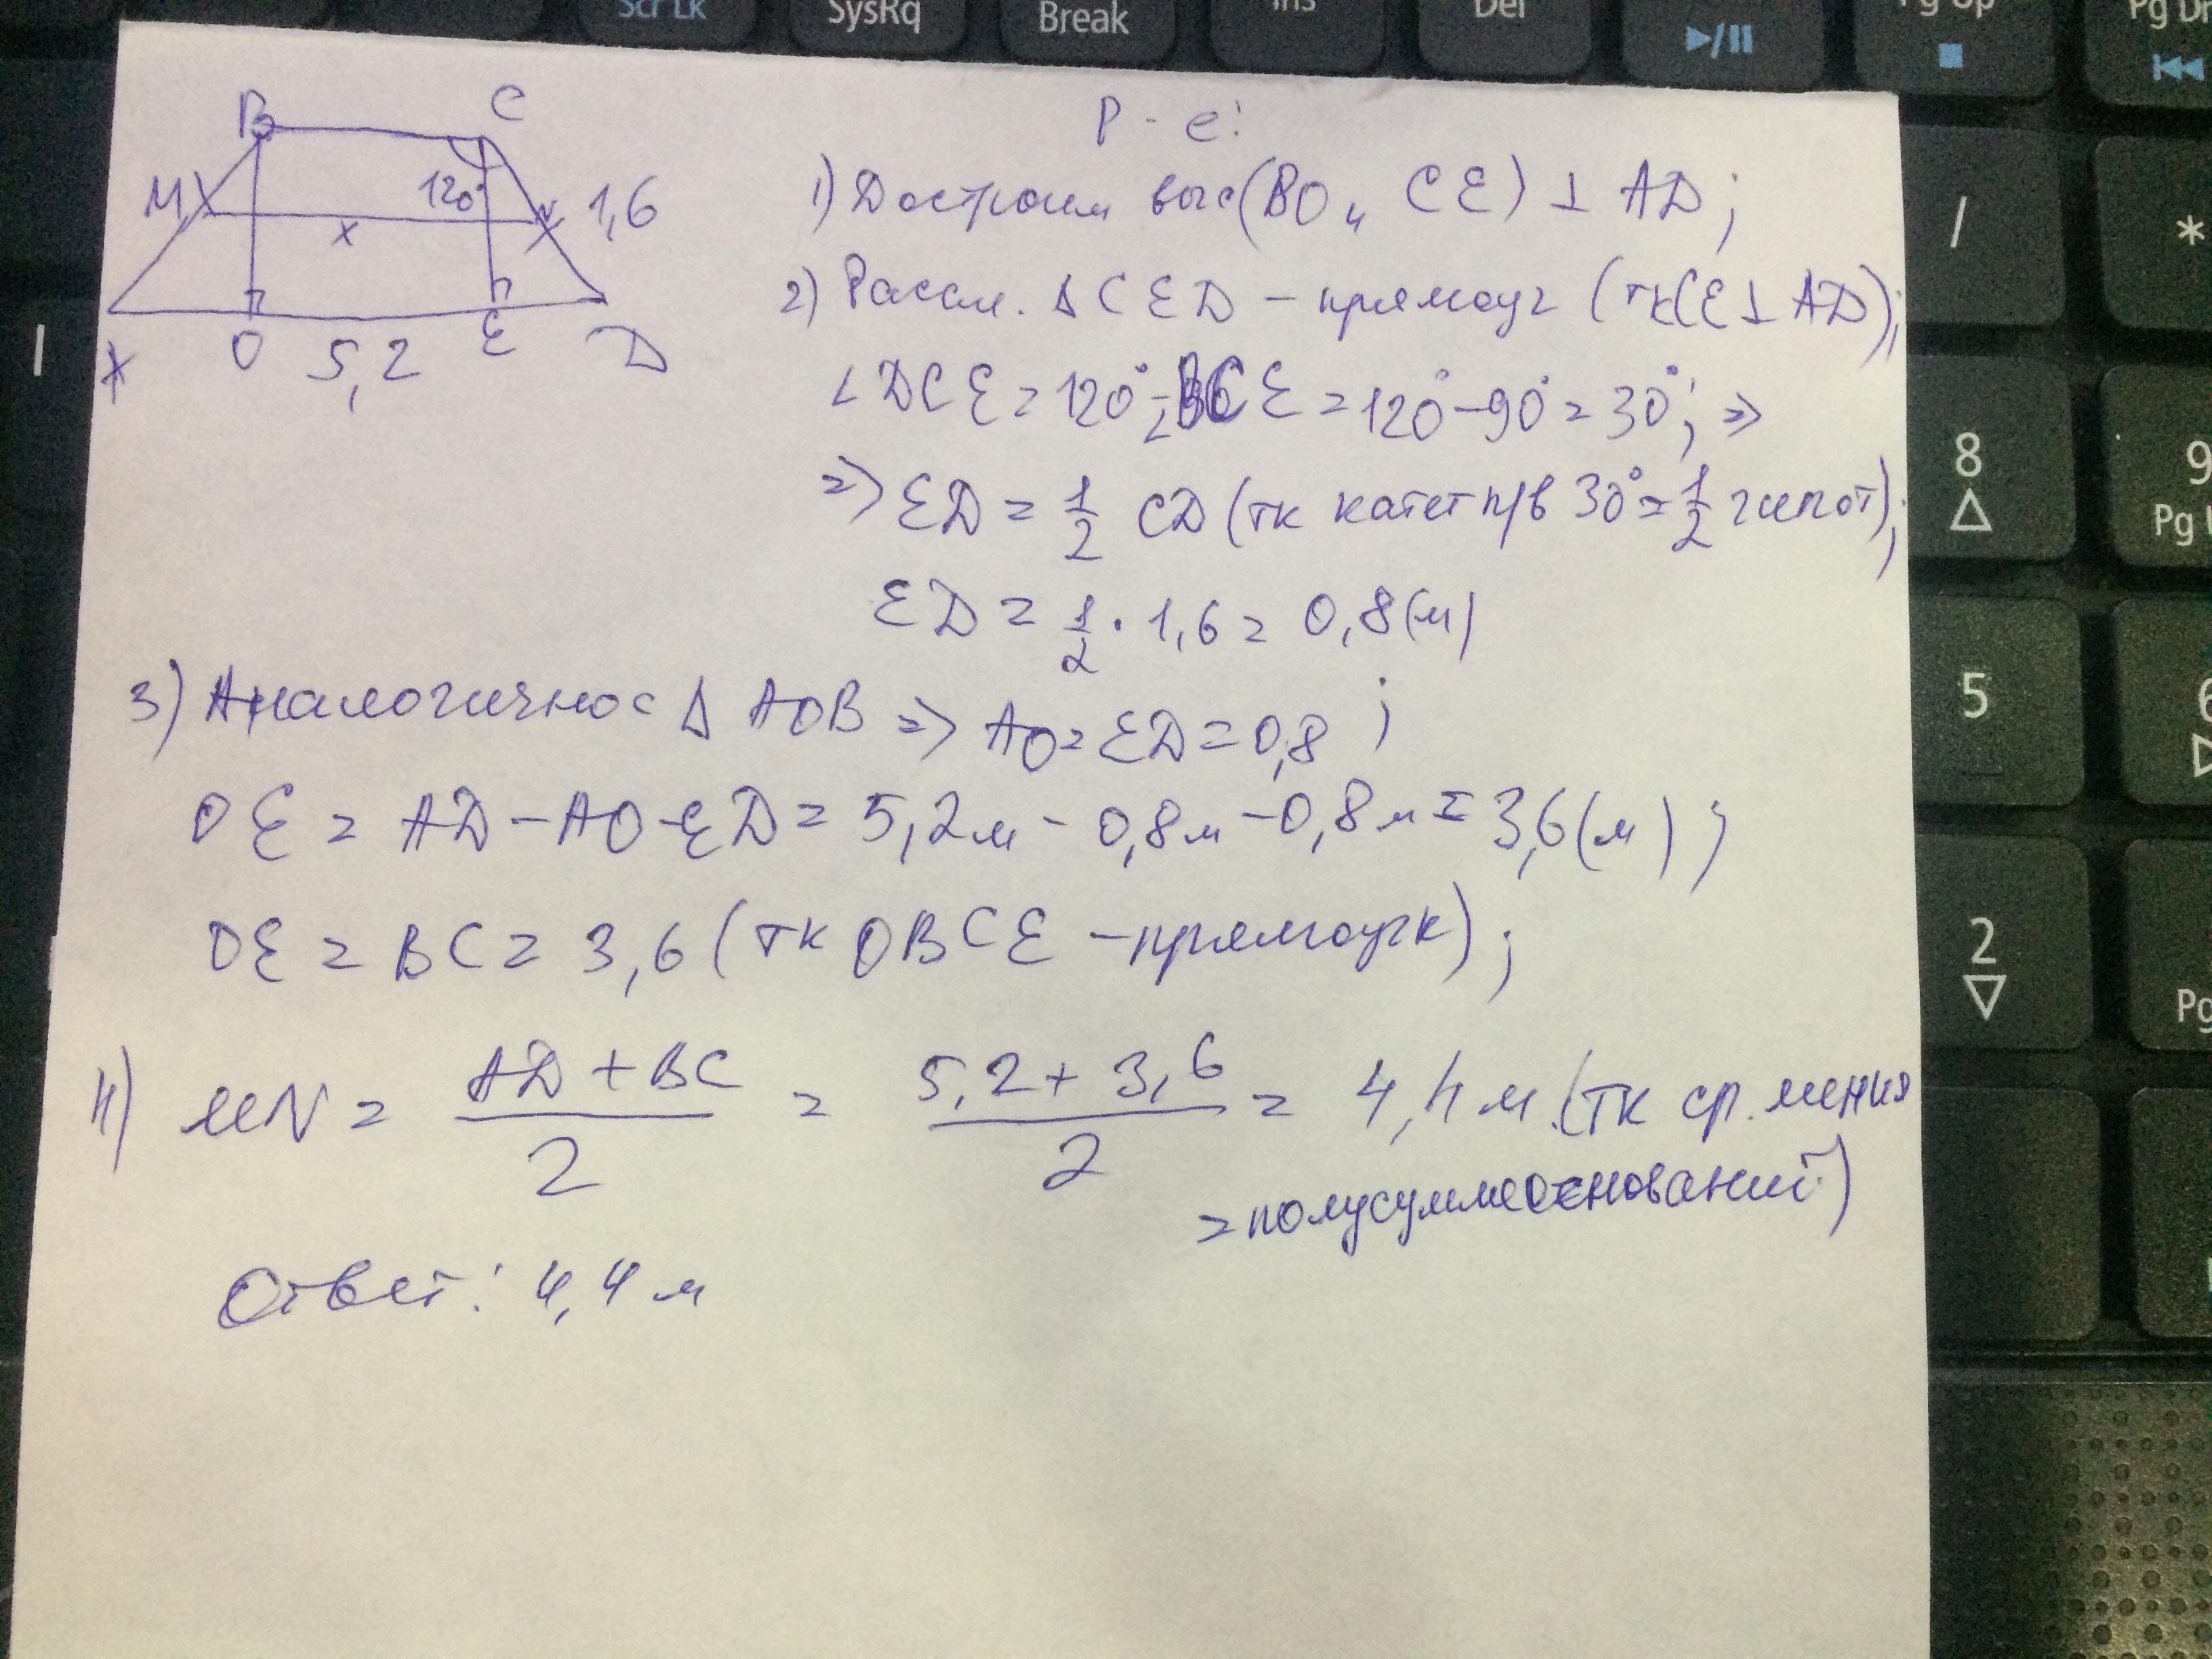 Scr Lk
SysRq
Break
Ins
Del
Pg Up
Pg Dn
B C
M 120° N 1,6
x
O 5,2 E D
Р-е:
1) Достроим выс(BO и CE) ⊥ AD;
2) Рассм. Δ CED – прямоуг (тк CE ⊥ AD);
∠DCE = 120° - ∠BCE = 120° - 90° = 30°; =>
=> ED = 1/2 CD (тк катет п/в 30° = 1/2 гипот);
ED = 1/2 · 1,6 = 0,8(м)
3) Аналогично с Δ AOB => AO = ED = 0,8 ;
OE = AD - AO - ED = 5,2м - 0,8м - 0,8м = 3,6(м) ;
OE = BC = 3,6 (тк OBCE – прямоугк) ;
4) MN = (AD + BC)/2 = (5,2 + 3,6)/2 = 4,4 м.(тк ср. линия
= полусумме оснований)
Ответ: 4,4 м
/
*
8
9
Pg
5
6
2
Pg